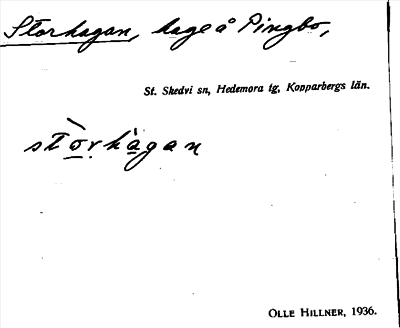 Storhagan, hage å Pingbo,
St. Skedvi sn, Hedemora tg, Kopparbergs län.
stòrhàgan
OLLE HILLNER, 1936.